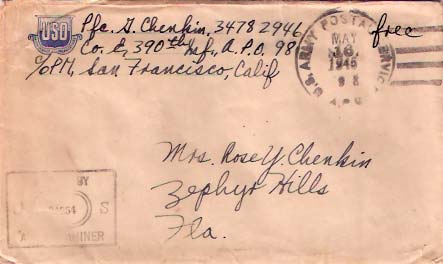 USO
Pfc. G. Chenkin, 34782946
Co. E, 390th Inf., A.P.O. 98
c/o PM, San Francisco, Calif
U.S. ARMY POSTAL SERVICE
MAY
16
1945
A.P.O.
free
Mrs. Rose Y. Chenkin
Zephyr Hills
Fla.
BY
U S
ARMY EXAMINER